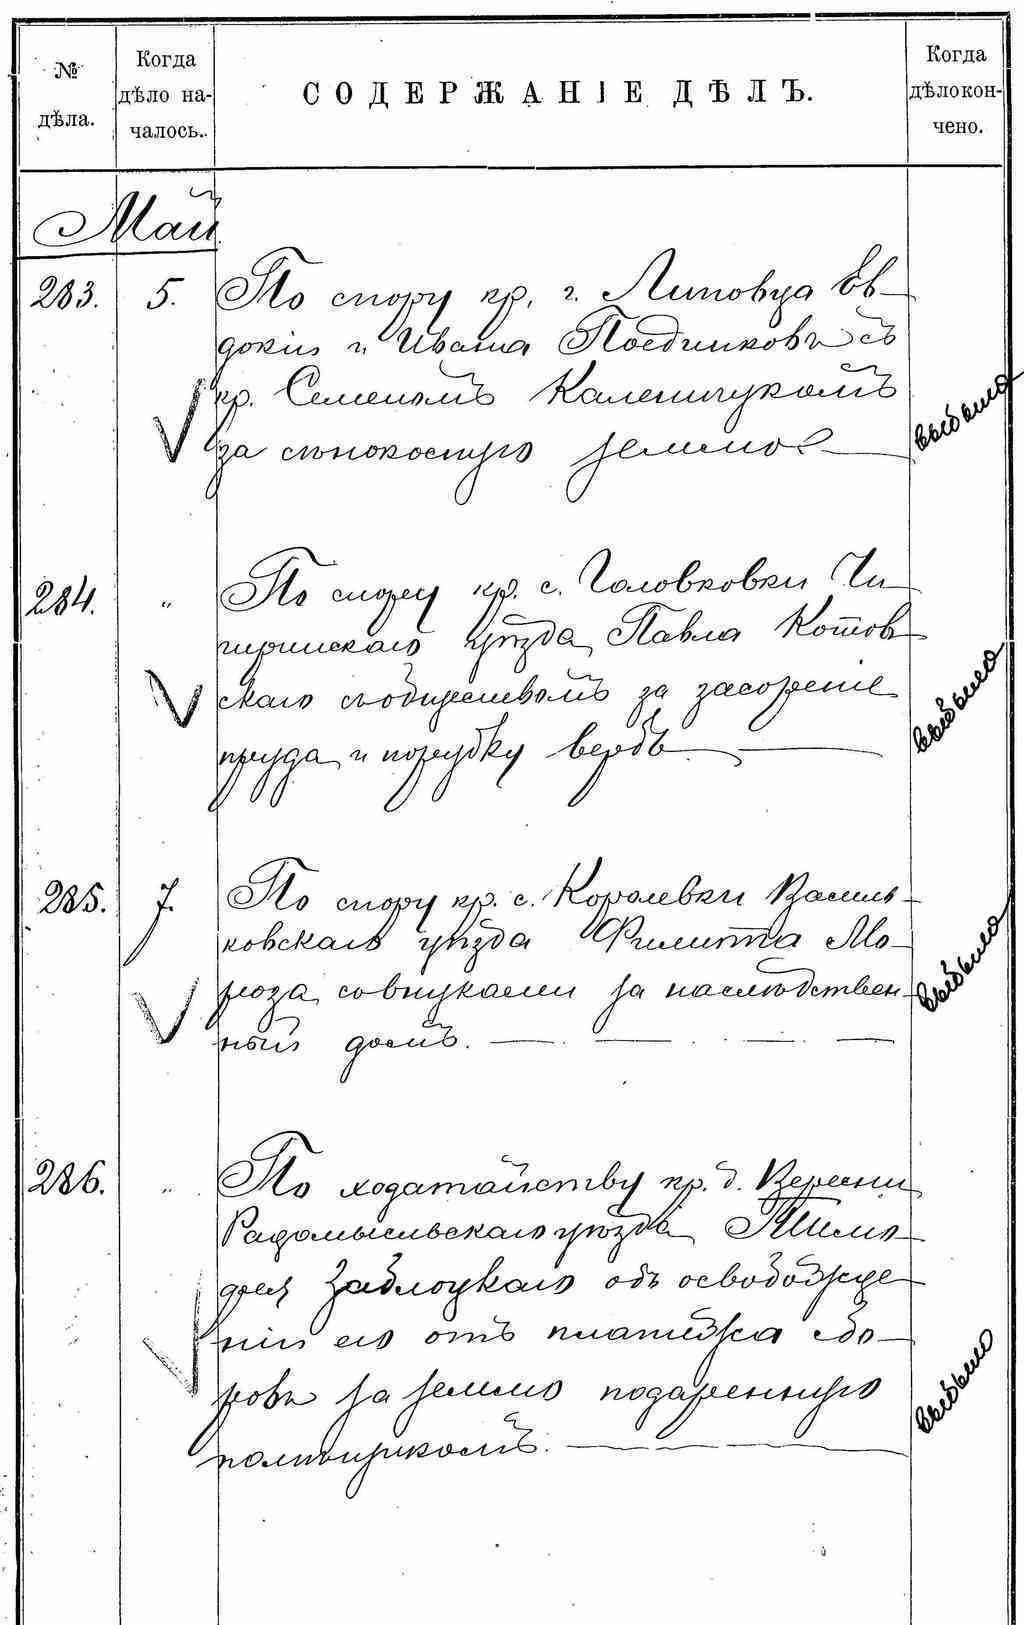 № дѣла.
Когда дѣло на-чалось.
СОДЕРЖАНІЕ ДѢЛЪ.
Когда дѣло кон-чено.
Май
283. 5. По спору кр. г. Липовца Ев-
докіи и Ивана Поединковъ съ
кр. Семеномъ Каленчукомъ
за сѣнокосную землю
выбыло
284. " По спору кр. с. Головковки Чи-
гиринскаго уѣзда Павла Котов
скаго съ обществомъ за засореніе
пруда и порубку вербъ
выбыло
285. 7. По спору кр. с. Королевки Василь-
ковскаго уѣзда Филиппа Мо-
роза со внуками за наслѣдствен-
ный домъ.
выбыло
286. " По ходатайству кр. д. Вересни
Радомысльскаго уѣзда Тимо-
фея Заблоцкаго объ освобожде
ніи его отъ платежа сбо-
ровъ за землю подаренную
помѣщикомъ.
выбыло